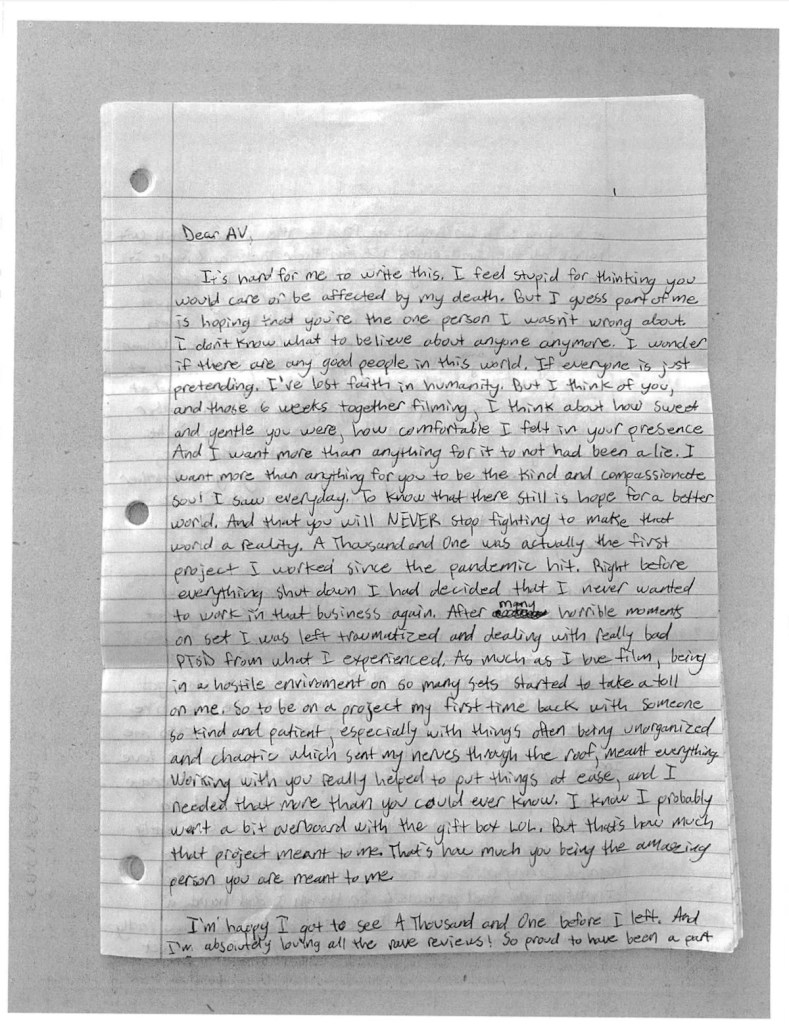 1
Dear AV,
It's hard for me to write this. I feel stupid for thinking you
would care or be affected by my death. But I guess part of me
is hoping that you're the one person I wasn't wrong about.
I don't know what to believe about anyone anymore. I wonder
if there are any good people in this world. If everyone is just
pretending. I've lost faith in humanity. But I think of you,
and those 6 weeks together filming, I think about how sweet
and gentle you were, how comfortable I felt in your presence
And I want more than anything for it to not had been a lie. I
want more than anything for you to be the kind and compassionate
soul I saw everyday. To know that there still is hope for a better
world. And that you will NEVER stop fighting to make that
world a reality. A Thousand and One was actually the first
project I worked since the pandemic hit. Right before
everything shut down I had decided that I never wanted
to work in that business again. After many horrible moments
on set I was left traumatized and dealing with really bad
PTSD from what I experienced. As much as I love film, being
in a hostile enviroment on so many sets started to take a toll
on me. So to be on a project my first time back with someone
so kind and patient, especially with things often being unorganized
and chaotic which sent my nerves through the roof, meant everything
Working with you really helped to put things at ease, and I
needed that more than you could ever know. I know I probably
went a bit overboard with the gift box LOL. But that's how much
that project meant to me. That's how much you being the amazing
person you are meant to me.
I'm happy I got to see A Thousand and One before I left. And
I'm absolutely loving all the rave reviews! So proud to have been a part